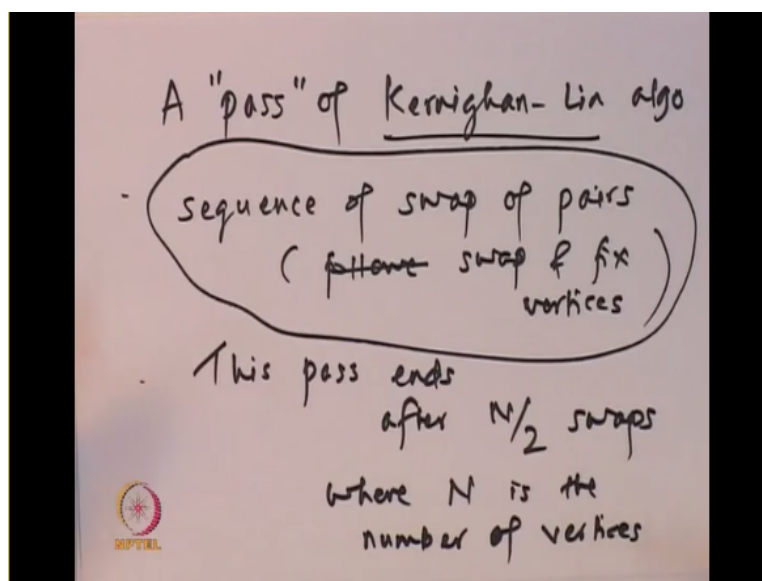 A "pass" of Kernighan-Lin algo
sequence of swap of pairs
( swap & fix
vertices )
This pass ends
after N/2 swaps
where N is the
number of vertices
NPTEL